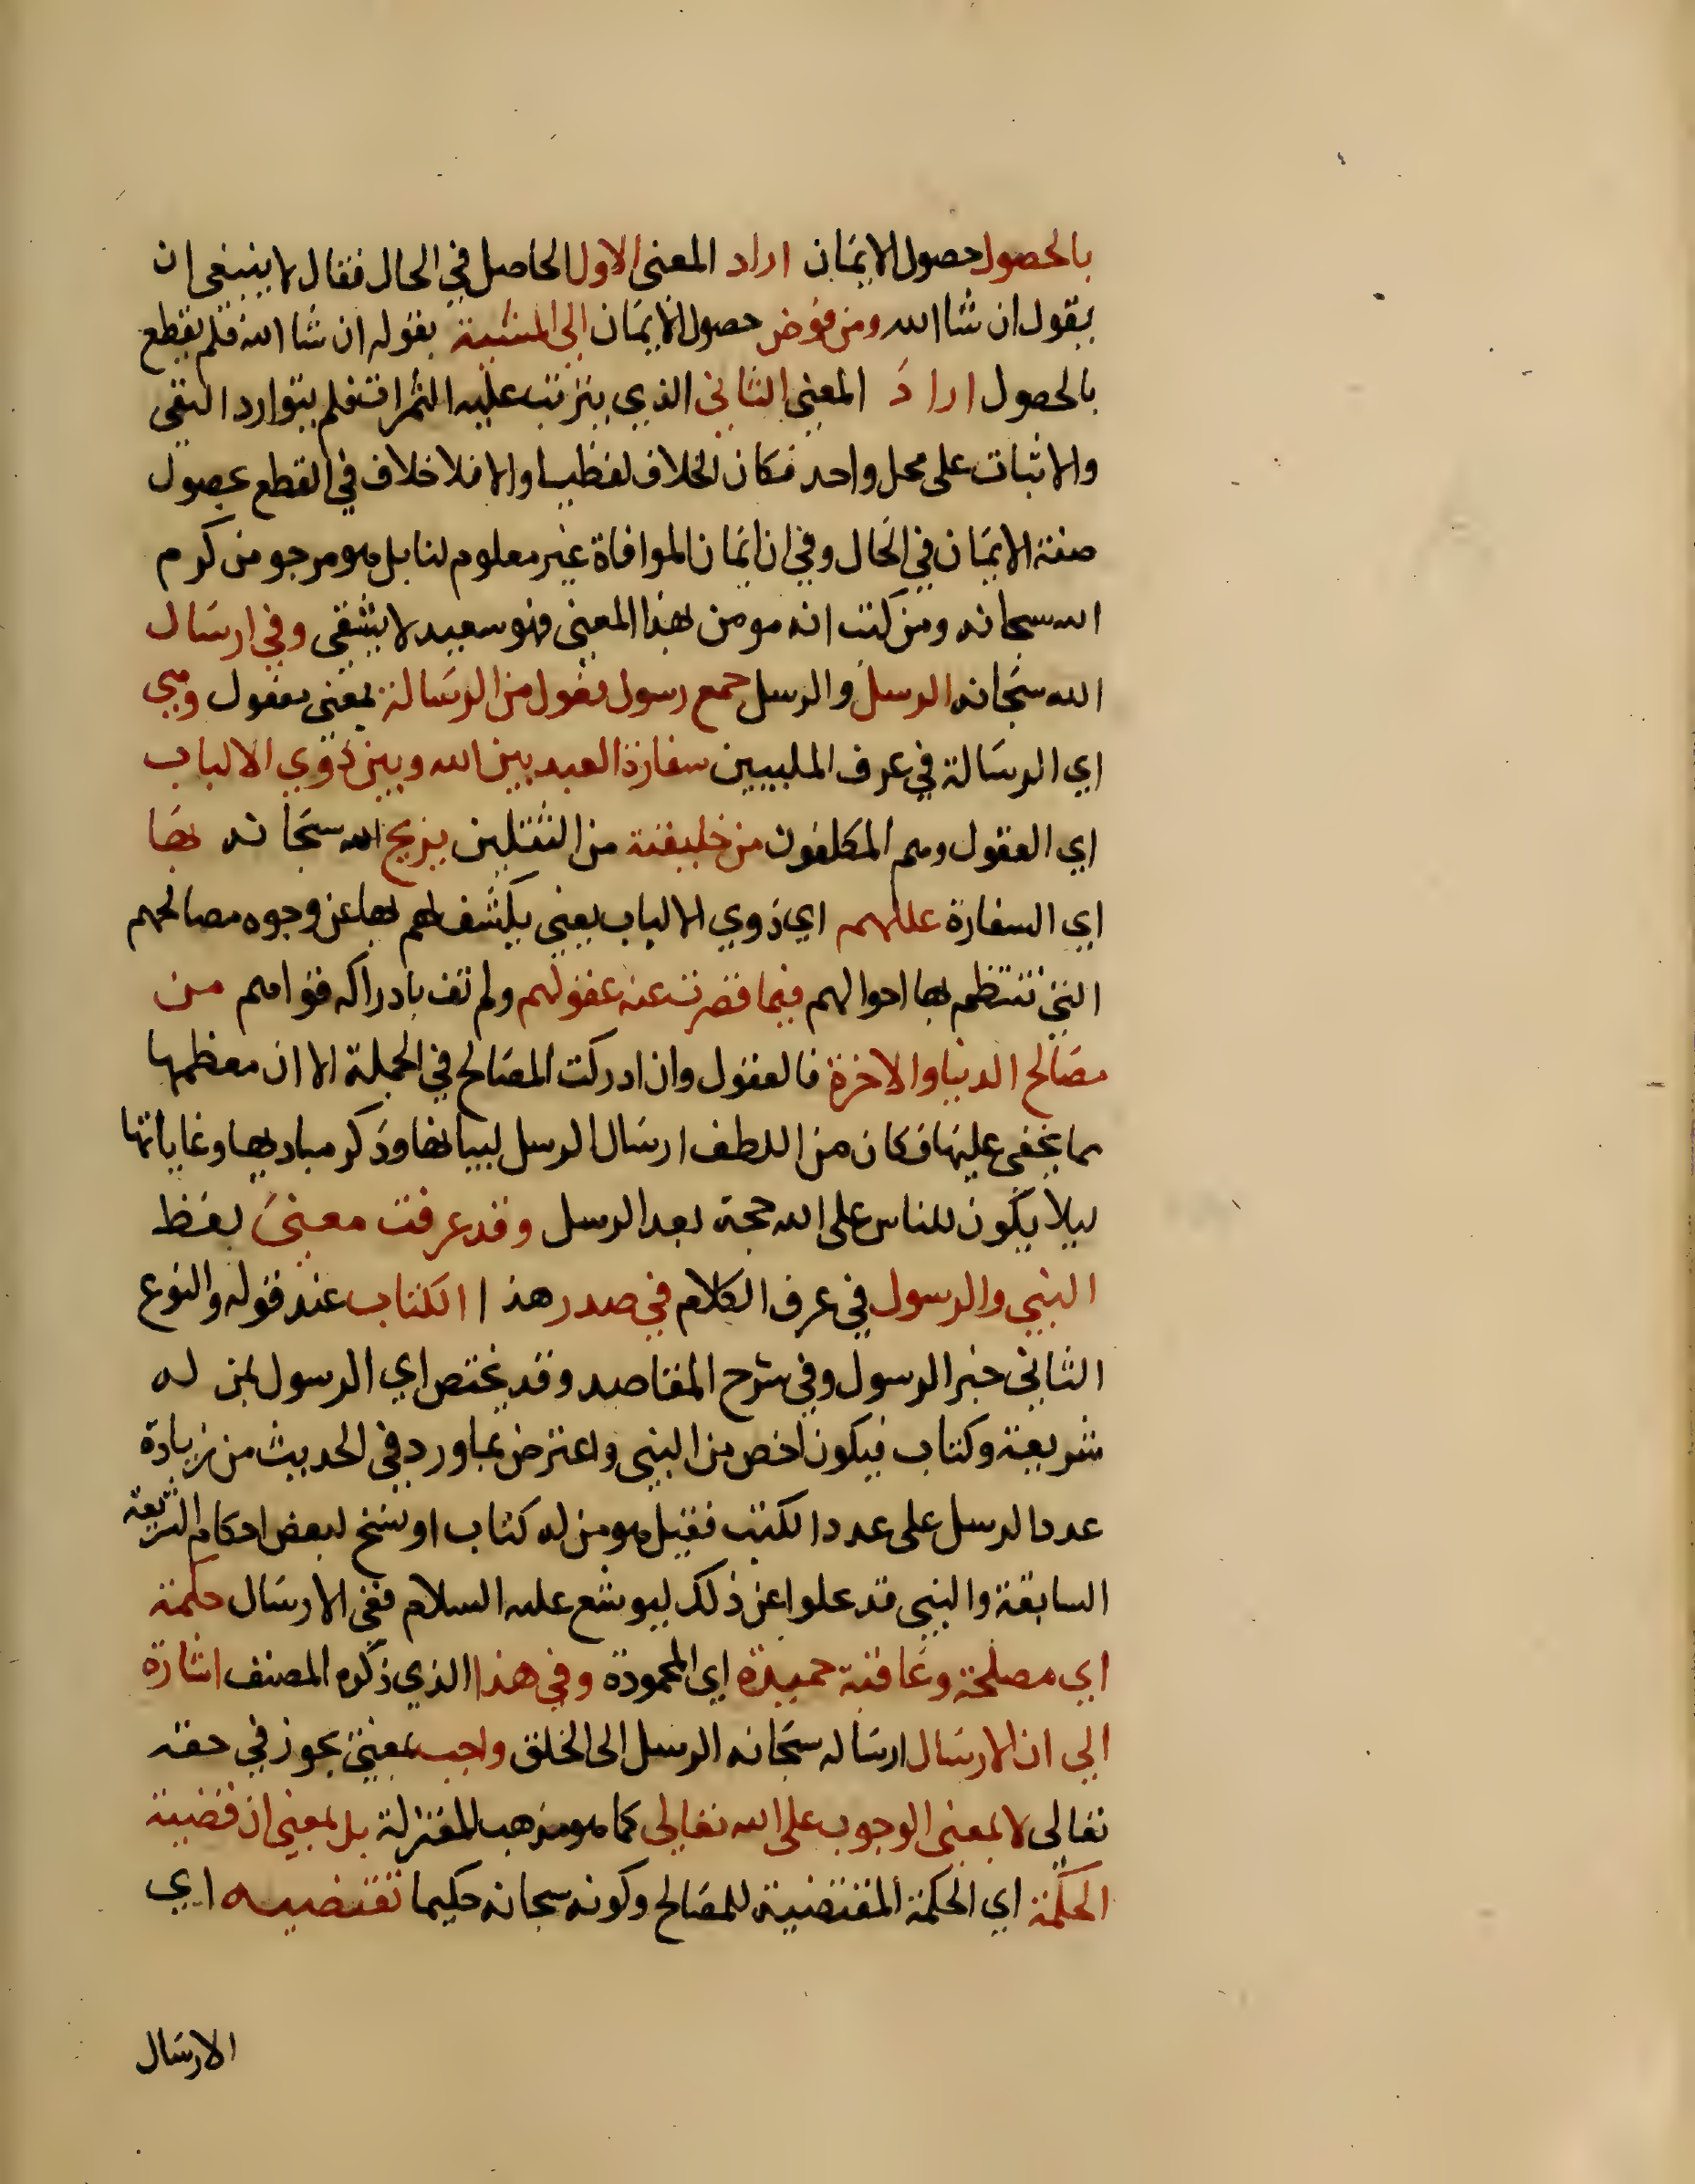 بالحصول حصول الايمان اراد المعنى الاول الحاصل في الحال فقال لا ينبغى ان
يقول ان شا الله ومن فوض حصول الايمان الى المشيئة بقوله ان شا الله فلم يقطع
بالحصول اراد المعنى الثاني الذي يترتب عليه الثمرات فلم يتوارد النفى
والاثبات على محل واحد فكان الخلاف لفظيا والا فلا خلاف في القطع بحصول
صفة الايمان في الحال وفي ان ايمان الموافاة غير معلوم لنا بل هو مرجو من كرم
الله سبحانه ومن كتب انه مومن بهذا المعنى فهو سعيد لا يشقى وفي ارسال
الله سبحانه الرسل والرسل جمع رسول فعول من الرسالة بمعنى مفعول وهي
اي الرسالة في عرف المليين سفارة العبد بين الله وبين ذوي الالباب
اي العقول وهم المكلفون من خليقته من الثقلين يزيح الله سبحانه بها
اي السفارة عللهم اي ذوي الالباب يعني يكشف لهم بها عن وجوه مصالحهم
التي تنتظم بها احوالهم فيما قصرت عنه عقولهم ولم تف بادراكه قواهم من
مصالح الدنيا والاخرة فالعقول وان ادركت المصالح في الجملة الا ان معظمها
مما يخفى عليها فكان من اللطف ارسال الرسل لبيانها وذكر مباديها وغاياتها
ليلا يكون للناس على الله حجة بعد الرسل وقد عرفت معنى لفظ
النبي والرسول في عرف الكلام في صدر هذا الكتاب عند قوله والنوع
الثاني خبر الرسول وفي شرح المقاصد وقد يختص اي الرسول بمن له
شريعة وكتاب فيكون اخص من النبي واعترض بما ورد في الحديث من زيادة
عدد الرسل على عدد الكتب فقيل هو من له كتاب او نسخ لبعض احكام الشريعة
السابقة والنبي قد علوا عن ذلك ليوشع عليه السلام ففي الارسال حكمة
اي مصلحة وعاقبة حميدة اي المحمودة وفي هذا الذي ذكره المصنف اشارة
الى ان الارسال ارساله سبحانه الرسل الى الخلق واجب بمعنى يجوز في حقه
تعالى لا بمعنى الوجوب على الله تعالى كما هو مذهب المعتزلة بل بمعنى ان قضية
الحكمة اي الحكمة المقتضية للمصالح وكونه سبحانه حكيما تقتضيه اي
الارسال